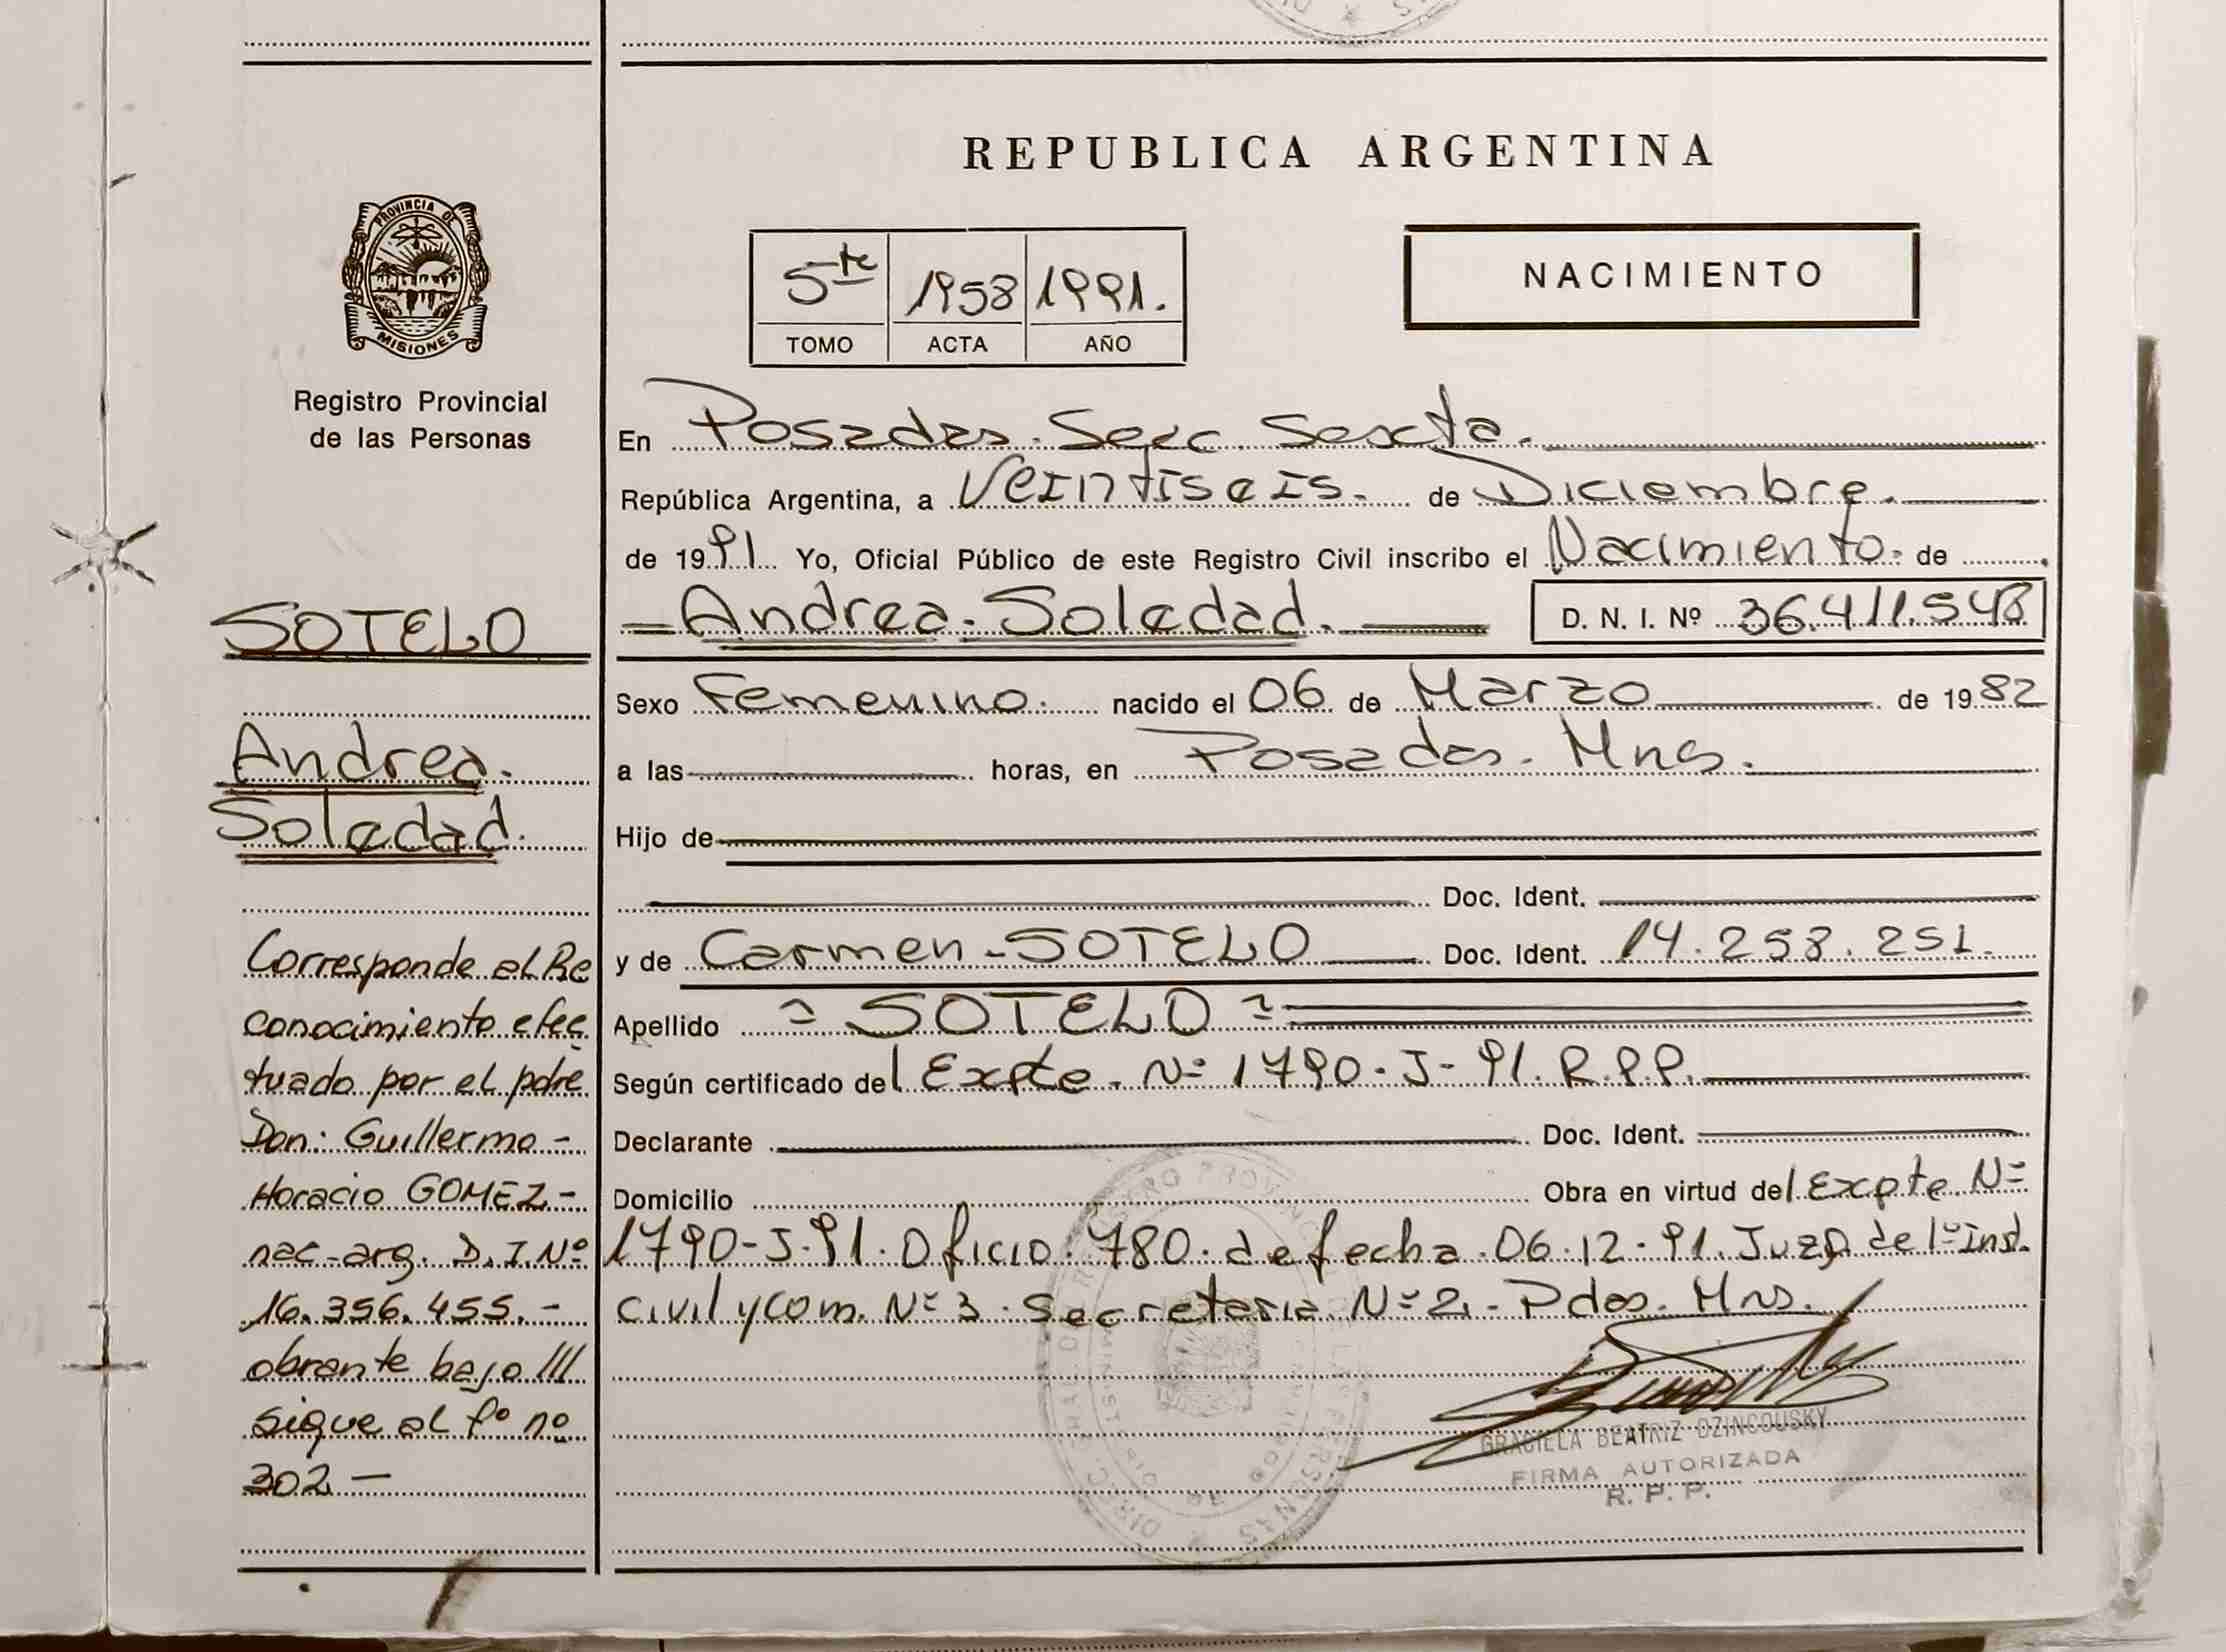 REPUBLICA ARGENTINA
PROVINCIA DE
MISIONES
Registro Provincial
de las Personas
5te 1958 1991.
TOMO ACTA AÑO
NACIMIENTO
En Posadas. Secc. Sexta.
República Argentina, a Veintiseis. de Diciembre.
de 1991 Yo, Oficial Público de este Registro Civil inscribo el Nacimiento. de
Andrea. Soledad. D. N. I. Nº 36.411.548
Sexo Femenino. nacido el 06 de Marzo de 1982
a las horas, en Posadas. Mns.
Hijo de
Doc. Ident.
y de Carmen - SOTELO Doc. Ident. 14.258.251.
Apellido = SOTELO =
Según certificado del Expte. Nº 1790-J-91. R.P.P.
Declarante Doc. Ident.
Domicilio Obra en virtud del Expte Nº
1790-J-91. Oficio. 780. de fecha. 06.12.91. Juzg de 1º Inst.
civil y com. Nº 3. Secretaria Nº 2.- Pdas. Mns.
GRACIELA BEATRIZ OZINCOUSKY
FIRMA AUTORIZADA
R. P. P.
SOTELO
Andrea.
Soledad.
Corresponde al Re
conocimiento efec
tuado por el pdre
Don: Guillermo -
Horacio GOMEZ -
nac-arg. D.I.Nº
16.356.455.-
obrante bajo ///
sigue al fº nº
302 —